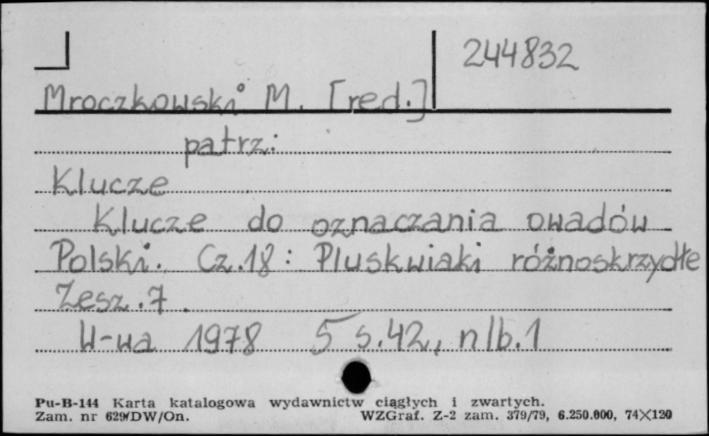 244832
Mroczkowski M. [red.]
patrz:
Klucze
Klucze do oznaczania owadów
Polski. Cz.18: Pluskwiaki różnoskrzydłe
Zesz.7.
W-wa 1978 5 s.42, nlb.1
Pu-B-144 Karta katalogowa wydawnictw ciągłych i zwartych.
Zam. nr 629/DW/On. WZGraf. Z-2 zam. 379/79, 6.250.000, 74×120